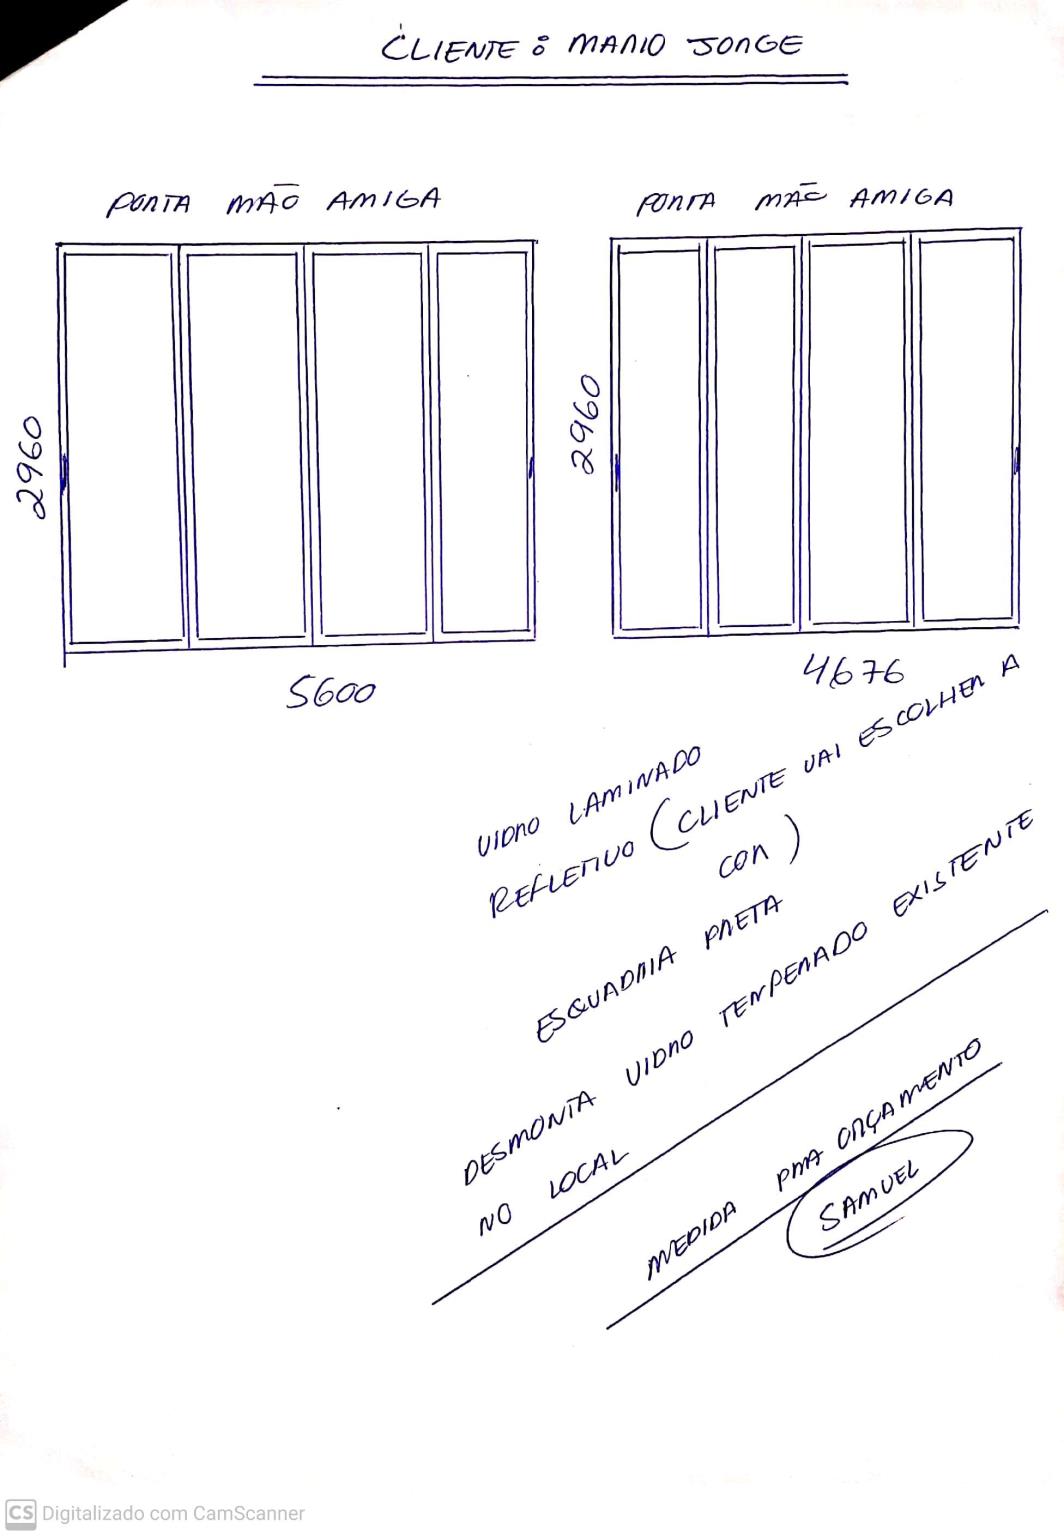 CLIENTE: MARIO JORGE
PORTA MÃO AMIGA
PORTA MÃO AMIGA
2960
2960
5600
4676
VIDRO LAMINADO
REFLETIVO (CLIENTE VAI ESCOLHER A
COR)
ESQUADRIA PRETA
DESMONTA VIDRO TEMPERADO EXISTENTE
NO LOCAL
MEDIDA PRA ORÇAMENTO
SAMUEL
CS Digitalizado com CamScanner